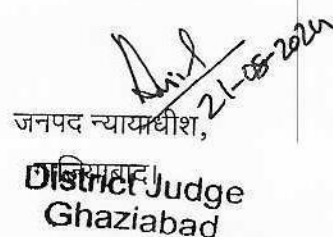 21-08-2024
जनपद न्यायाधीश,
गाजियाबाद।
District Judge
Ghaziabad